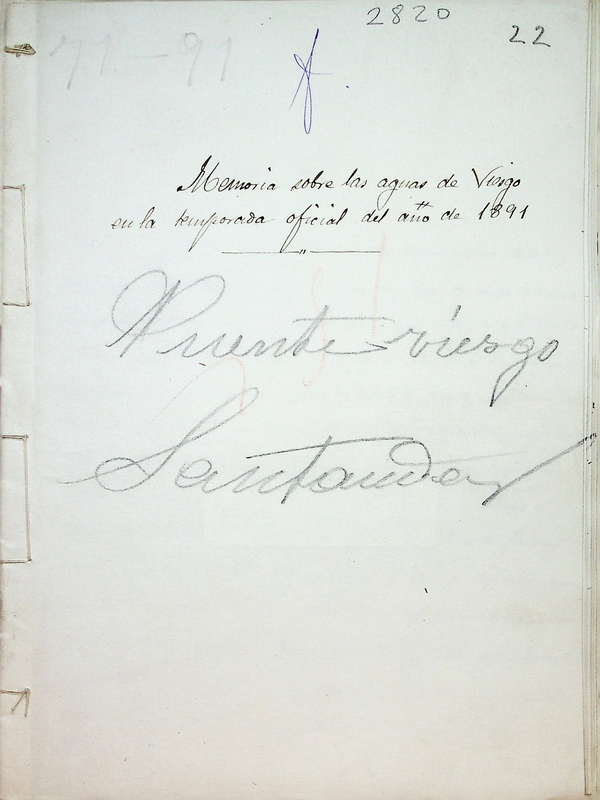 2820
22
Memoria sobre las aguas de Viesgo
en la temporada oficial del año de 1891
Puente viesgo
Santander